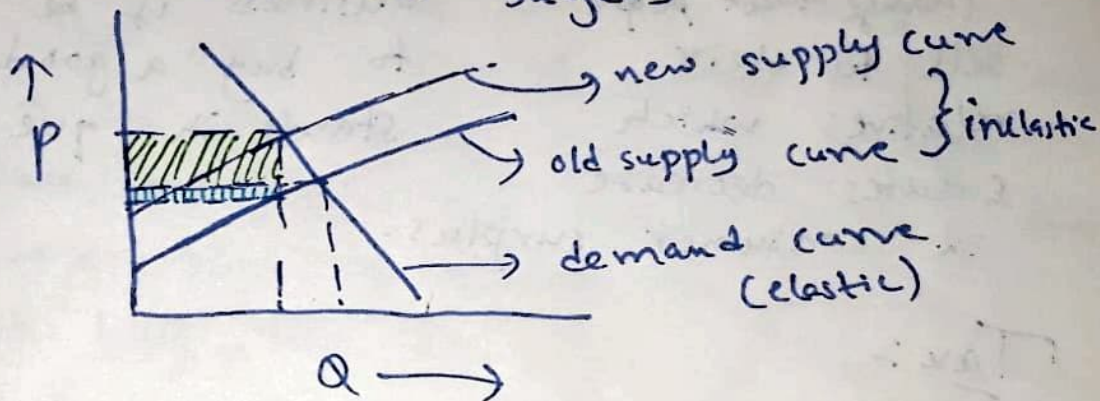 P
new supply curve
old supply curve
} inelastic
demand curve
(elastic)
Q